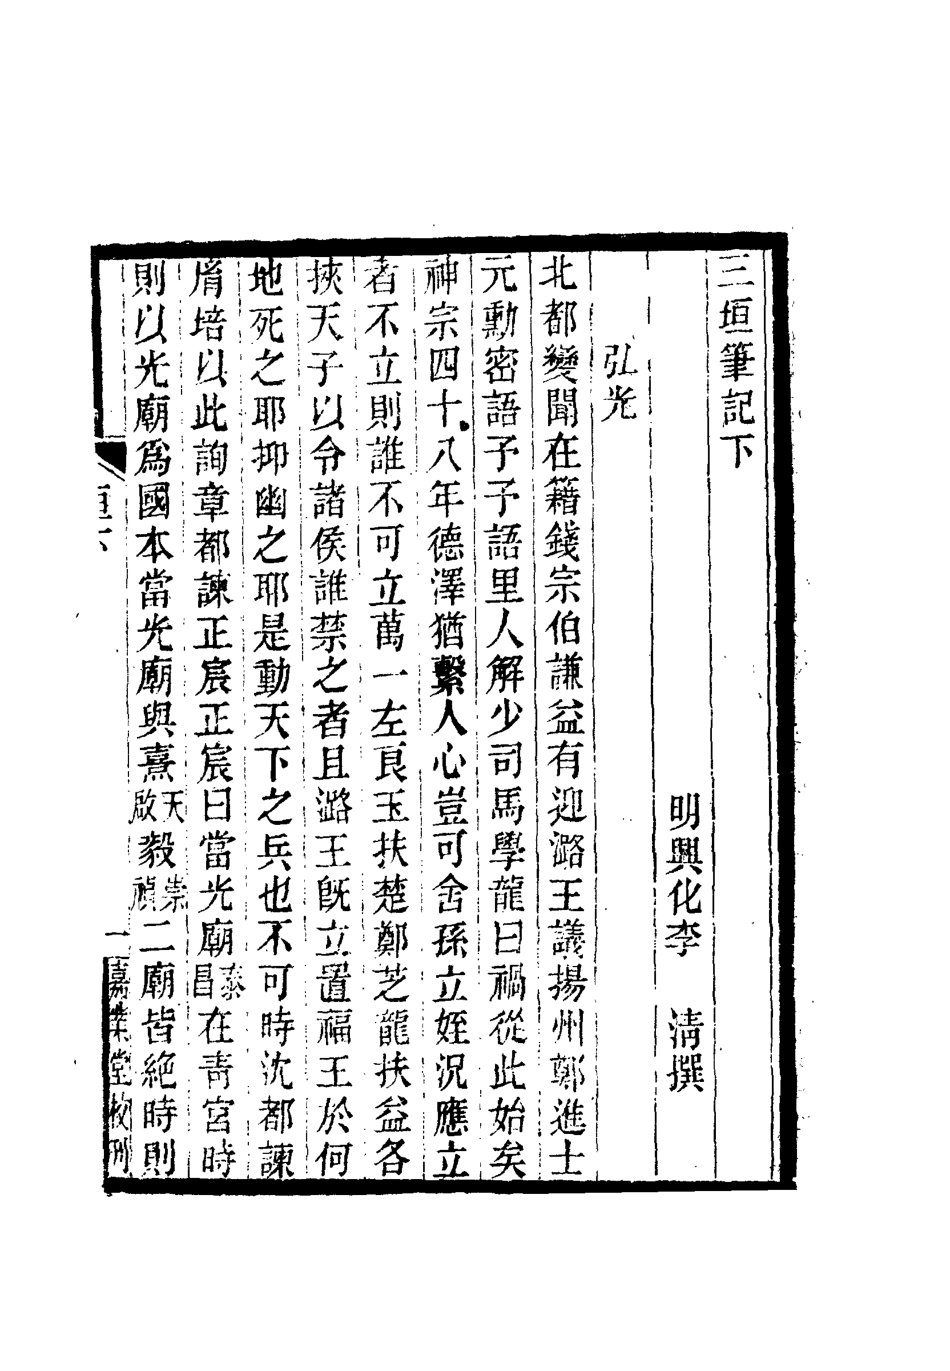 三垣筆記下
明興化李　淸撰
弘光
北都變聞在籍錢宗伯謙益有迎潞王議揚州鄭進士
元勳密語予予語里人解少司馬學龍曰禍從此始矣
神宗四十八年德澤猶繫人心豈可舍孫立姪況應立
者不立則誰不可立萬一左良玉扶楚鄭芝龍扶益各
挾天子以令諸侯誰禁之者且潞王旣立置福王於何
地死之耶抑幽之耶是動天下之兵也不可時沈都諫
胤培以此詢章都諫正宸正宸曰當光廟泰昌在靑宮時
則以光廟爲國本當光廟與熹天啟毅崇禎二廟皆絶時則
垣下
一
嘉業堂校刊